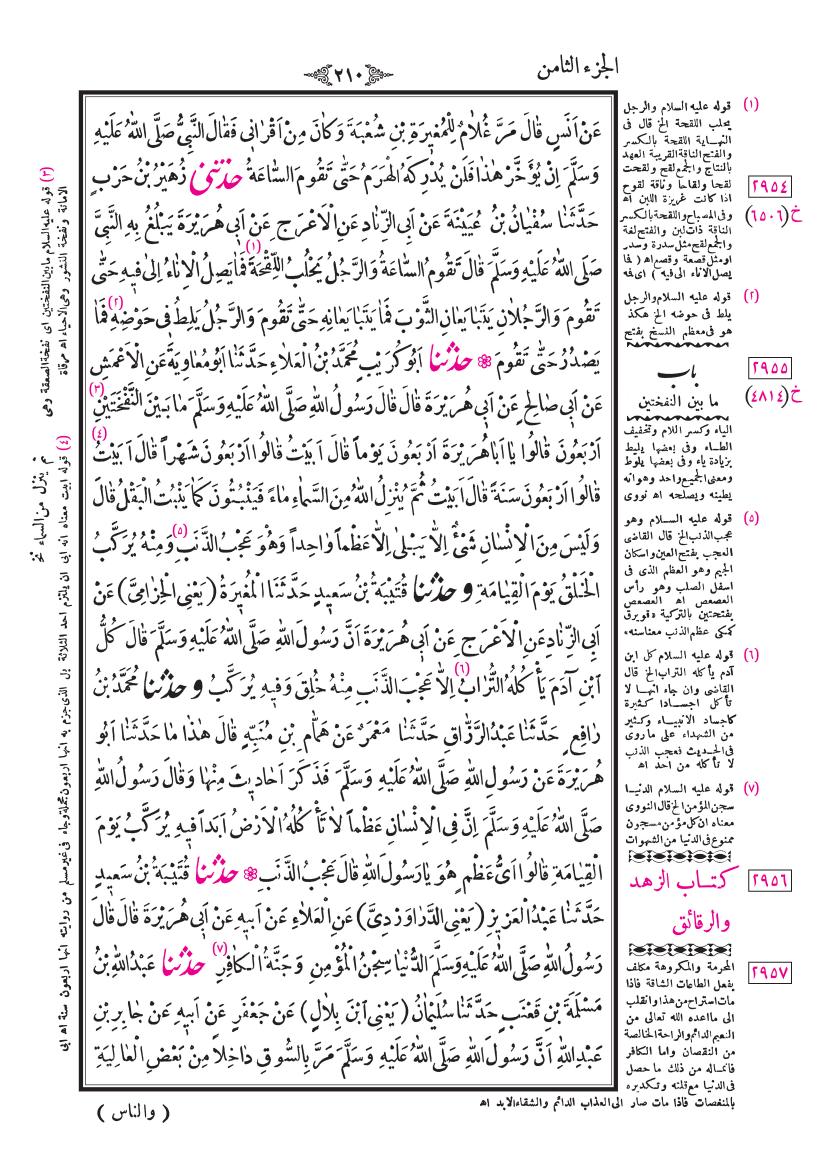 الجزء الثامن
٢١٠
عَنْ اَنَسٍ قَالَ مَرَّ غُلَامٌ لِلْمُغِيرَةِ بْنِ شُعْبَةَ وَكَانَ مِنْ اَقْرَانِى فَقَالَ النَّبِىُّ صَلَّى اللهُ عَلَيْهِ
وَسَلَّمَ اِنْ يُؤَخَّرْ هٰذَا فَلَنْ يُدْرِكَهُ الْهَرَمُ حَتّٰى تَقُومَ السَّاعَةُ حَدَّثَنِى زُهَيْرُ بْنُ حَرْبٍ
حَدَّثَنَا سُفْيَانُ بْنُ عُيَيْنَةَ عَنْ اَبِى الزِّنَادِ عَنِ الْاَعْرَجِ عَنْ اَبِى هُرَيْرَةَ يَبْلُغُ بِهِ النَّبِىَّ
صَلَّى اللهُ عَلَيْهِ وَسَلَّمَ قَالَ تَقُومُ السَّاعَةُ وَالرَّجُلُ يَحْلُبُ اللِّقْحَةَ (١) فَمَا يَصِلُ الْاِنَاءُ اِلٰى فِيهِ حَتّٰى
تَقُومَ وَالرَّجُلَانِ يَتَبَايَعَانِ الثَّوْبَ فَمَا يَتَبَايَعَانِهِ حَتّٰى تَقُومَ وَالرَّجُلُ يَلِطُ فِى حَوْضِهِ (٢) فَمَا
يَصْدُرُ حَتّٰى تَقُومَ ۞ حَدَّثَنَا اَبُو كُرَيْبٍ مُحَمَّدُ بْنُ الْعَلَاءِ حَدَّثَنَا اَبُو مُعَاوِيَةَ عَنِ الْاَعْمَشِ
عَنْ اَبِى صَالِحٍ عَنْ اَبِى هُرَيْرَةَ قَالَ قَالَ رَسُولُ اللهِ صَلَّى اللهُ عَلَيْهِ وَسَلَّمَ مَا بَيْنَ النَّفْخَتَيْنِ (٣)
اَرْبَعُونَ قَالُوا يَا اَبَا هُرَيْرَةَ اَرْبَعُونَ يَوْماً قَالَ اَبَيْتُ قَالُوا اَرْبَعُونَ شَهْراً قَالَ اَبَيْتُ (٤)
قَالُوا اَرْبَعُونَ سَنَةً قَالَ اَبَيْتُ ثُمَّ يُنْزِلُ اللهُ مِنَ السَّمَاءِ مَاءً فَيَنْبُتُونَ كَمَا يَنْبُتُ الْبَقْلُ قَالَ
وَلَيْسَ مِنَ الْاِنْسَانِ شَىْءٌ اِلَّا يَبْلٰى اِلَّا عَظْماً وَاحِداً وَهُوَ عَجْبُ الذَّنَبِ (٥) وَمِنْهُ يُرَكَّبُ
الْخَلْقُ يَوْمَ الْقِيَامَةِ وَ حَدَّثَنَا قُتَيْبَةُ بْنُ سَعِيدٍ حَدَّثَنَا الْمُغِيرَةُ (يَعْنِى الْحِزَامِىَّ) عَنْ
اَبِى الزِّنَادِ عَنِ الْاَعْرَجِ عَنْ اَبِى هُرَيْرَةَ اَنَّ رَسُولَ اللهِ صَلَّى اللهُ عَلَيْهِ وَسَلَّمَ قَالَ كُلُّ
ابْنِ آدَمَ يَأْكُلُهُ التُّرَابُ (٦) اِلَّا عَجْبَ الذَّنَبِ مِنْهُ خُلِقَ وَفِيهِ يُرَكَّبُ وَ حَدَّثَنَا مُحَمَّدُ بْنُ
رَافِعٍ حَدَّثَنَا عَبْدُ الرَّزَّاقِ حَدَّثَنَا مَعْمَرٌ عَنْ هَمَّامِ بْنِ مُنَبِّهٍ قَالَ هٰذَا مَا حَدَّثَنَا اَبُو
هُرَيْرَةَ عَنْ رَسُولِ اللهِ صَلَّى اللهُ عَلَيْهِ وَسَلَّمَ فَذَكَرَ اَحَادِيثَ مِنْهَا وَقَالَ رَسُولُ اللهِ
صَلَّى اللهُ عَلَيْهِ وَسَلَّمَ اِنَّ فِى الْاِنْسَانِ عَظْماً لَا تَأْكُلُهُ الْاَرْضُ اَبَداً فِيهِ يُرَكَّبُ يَوْمَ
الْقِيَامَةِ قَالُوا اَىُّ عَظْمٍ هُوَ يَا رَسُولَ اللهِ قَالَ عَجْبُ الذَّنَبِ ۞ حَدَّثَنَا قُتَيْبَةُ بْنُ سَعِيدٍ
حَدَّثَنَا عَبْدُ الْعَزِيزِ (يَعْنِى الدَّرَاوَرْدِىَّ) عَنِ الْعَلَاءِ عَنْ اَبِيهِ عَنْ اَبِى هُرَيْرَةَ قَالَ قَالَ
رَسُولُ اللهِ صَلَّى اللهُ عَلَيْهِ وَسَلَّمَ الدُّنْيَا سِجْنُ الْمُؤْمِنِ وَجَنَّةُ الْكَافِرِ (٧) حَدَّثَنَا عَبْدُ اللهِ بْنُ
مَسْلَمَةَ بْنِ قَعْنَبٍ حَدَّثَنَا سُلَيْمَانُ (يَعْنِى ابْنَ بِلَالٍ) عَنْ جَعْفَرٍ عَنْ اَبِيهِ عَنْ جَابِرِ بْنِ
عَبْدِ اللهِ اَنَّ رَسُولَ اللهِ صَلَّى اللهُ عَلَيْهِ وَسَلَّمَ مَرَّ بِالسُّوقِ دَاخِلاً مِنْ بَعْضِ الْعَالِيَةِ
(والناس)
(١) قوله عليه السلام والرجل
يحلب اللقحة الخ قال فى
النهاية اللقحة بالكسر
والفتح الناقة القريبة العهد
بالنتاج والجمع لقح ولقحت
لقحا ولقاحا وناقة لقوح
اذا كانت غزيرة اللبن اه
وفى المصباح واللقحة بالكسر
الناقة ذات لبن والفتح لغة
والجمع لقح مثل سدرة وسدر
او مثل قصعة وقصع اه (فما
يصل الاناء الى فيه) اى فمه
(٢) قوله عليه السلام والرجل
يلط فى حوضه الخ هكذا
هو فى معظم النسخ بفتح
باب
ما بين النفختين
الياء وكسر اللام وتخفيف
الطاء وفى بعضها يليط
بزيادة ياء وفى بعضها يلوط
ومعنى الجميع واحد وهو انه
يطينه ويصلحه اه نووى
(٥) قوله عليه السلام وهو
عجب الذنب الخ قال القاضى
العجب بفتح العين واسكان
الجيم وهو العظم الذى فى
اسفل الصلب وهو رأس
العصعص اه العصعص
بفتحتين بالتركية «قويرق
كمكى عظم الذنب معناسنه»
(٦) قوله عليه السلام كل ابن
آدم يأكله التراب الخ قال
القاضى وان جاء انها لا
تأكل اجسادا كثيرة
كاجساد الانبياء وكثير
من الشهداء على ما روى
فى الحديث فعجب الذنب
لا تأكله من احد اه
(٧) قوله عليه السلام الدنيا
سجن المؤمن الخ قال النووى
معناه ان كل مؤمن مسجون
ممنوع فى الدنيا من الشهوات
كتاب الزهد
والرقائق
المحرمة والمكروهة مكلف
بفعل الطاعات الشاقة فاذا
مات استراح من هذا وانقلب
الى ما اعده الله تعالى من
النعيم الدائم والراحة الخالصة
من النقصان واما الكافر
فانما له من ذلك ما حصل
فى الدنيا مع قلته وتكديره
بالمنغصات فاذا مات صار الى العذاب الدائم والشقاء الابد اه
٢٩٥٤
خ (٦٥٠٦)
٢٩٥٥
خ (٤٨١٤)
٢٩٥٦
٢٩٥٧
(٣) قوله عليه السلام ما بين النفختين اى نفخة الصعقة وهى
الاماتة ونفخة النشور وهى الاحياء اه مرقاة
ثم ينزل من السماء نخ
(٤) قوله ابيت معناه انه ابى ان يلتزم احد الثلاثة بل الذى جزم به انها اربعون مجملة وجاء فى غير مسلم من روايته انها اربعون سنة اه ابى